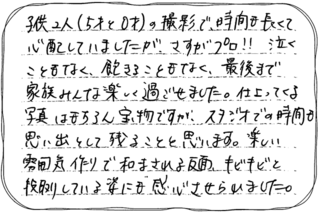 子供2人(5才と0才)の撮影で、時間も長くて
心配していましたが、さすがプロ!! 泣く
こともなく、飽きることもなく、最後まで
家族みんな楽しく過ごせました。仕上ってくる
写真はもちろん宝物ですが、スタジオでの時間も
思い出として残ることと思います。楽しい
雰囲気作りで和まされる反面、キビキビと
役割している姿にも感心させられました。